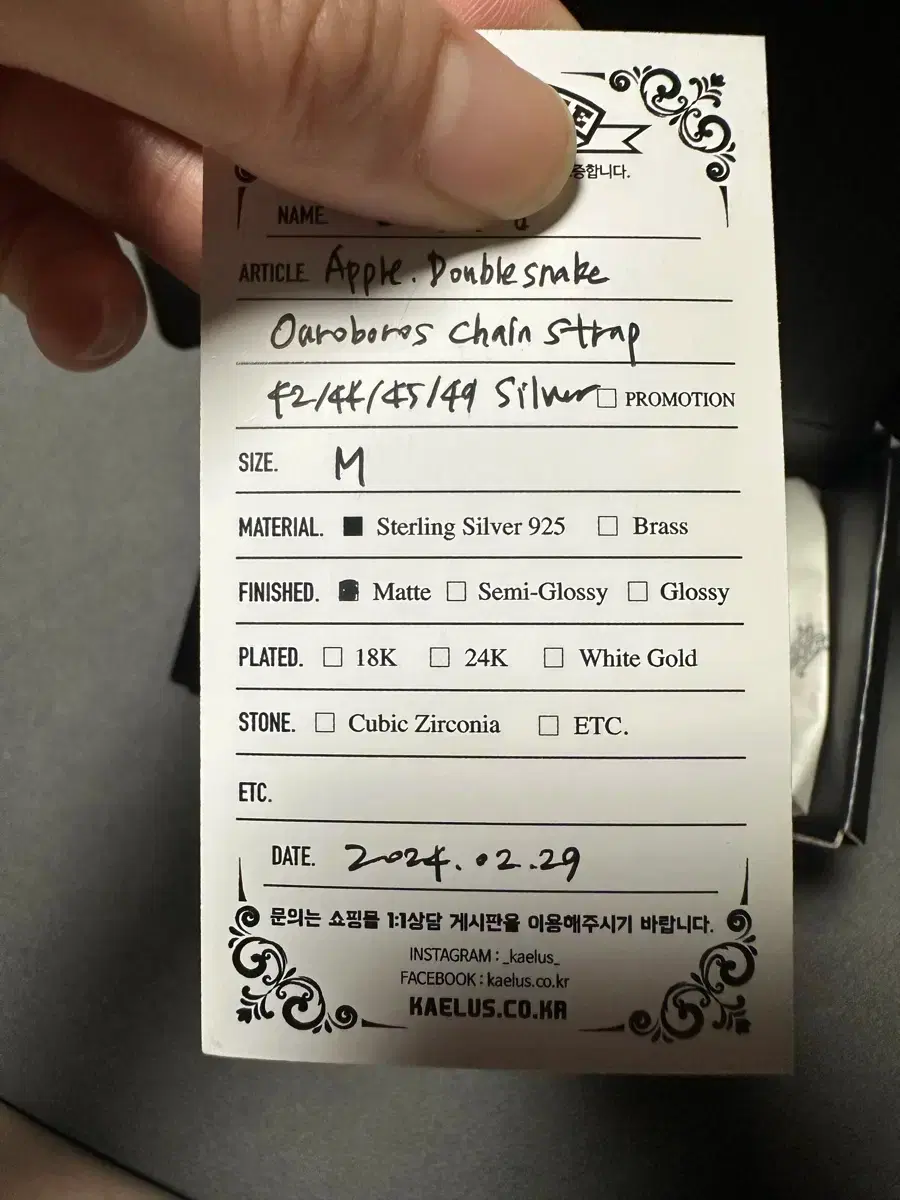 NAME.
ARTICLE. Apple. Doublesnake
Ouroboros chain strap
42/44/45/49 Silver □ PROMOTION
SIZE. M
MATERIAL. ■ Sterling Silver 925 □ Brass
FINISHED. ■ Matte □ Semi-Glossy □ Glossy
PLATED. □ 18K □ 24K □ White Gold
STONE. □ Cubic Zirconia □ ETC.
ETC.
DATE. 2024.02.29
문의는 쇼핑몰 1:1상담 게시판을 이용해주시기 바랍니다.
INSTAGRAM : _kaelus_
FACEBOOK : kaelus.co.kr
KAELUS.CO.KR